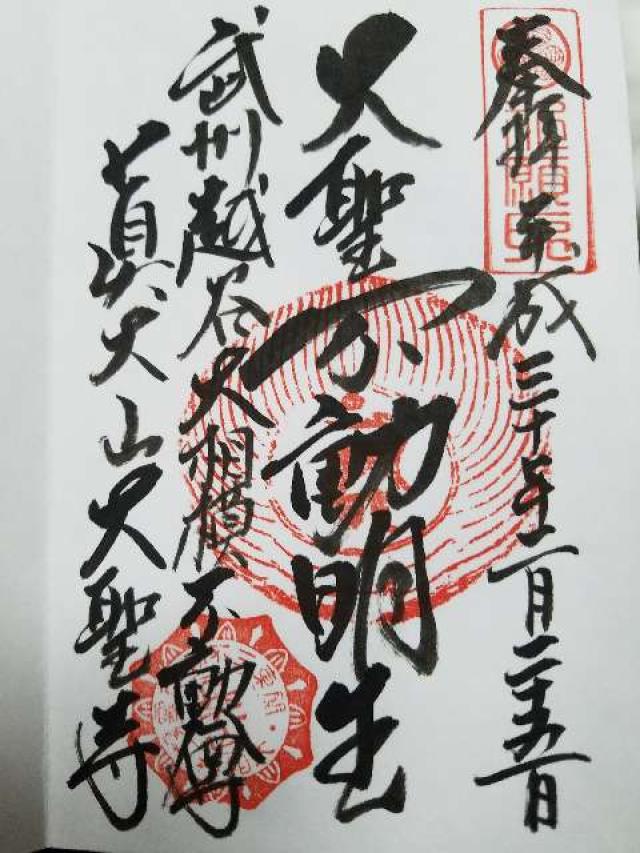 奉拝 平成三十年一月二十五日
大聖不動明王
武州越谷大相模不動尊
真大山大聖寺